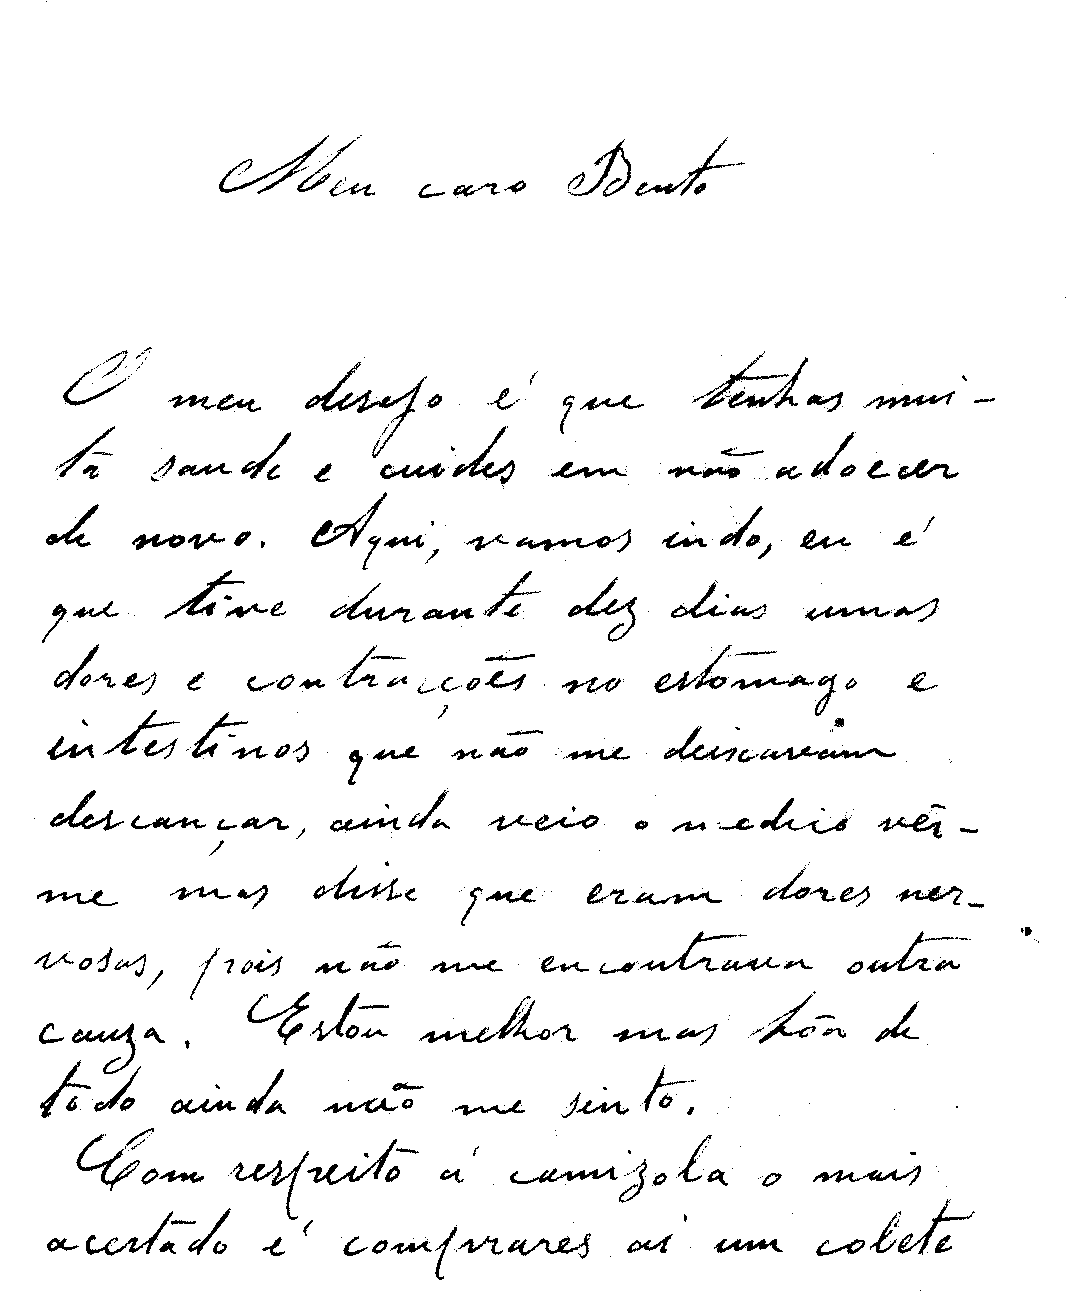 Meu caro Bento
O meu desejo é que tenhas mui-
ta saude e cuides em não adoecer
de novo. Aqui, vamos indo, eu é
que tive durante dez dias umas
dores e contracções no estomago e
intestinos que não me deixaram
descançar, ainda veio o medico vêr-
me mas disse que eram dores ner-
vosas, pois não me encontrava outra
cauza. Estou melhor mas bôa de
todo ainda não me sinto.
Com respeito á camizola o mais
acertado é comprares ai um colete